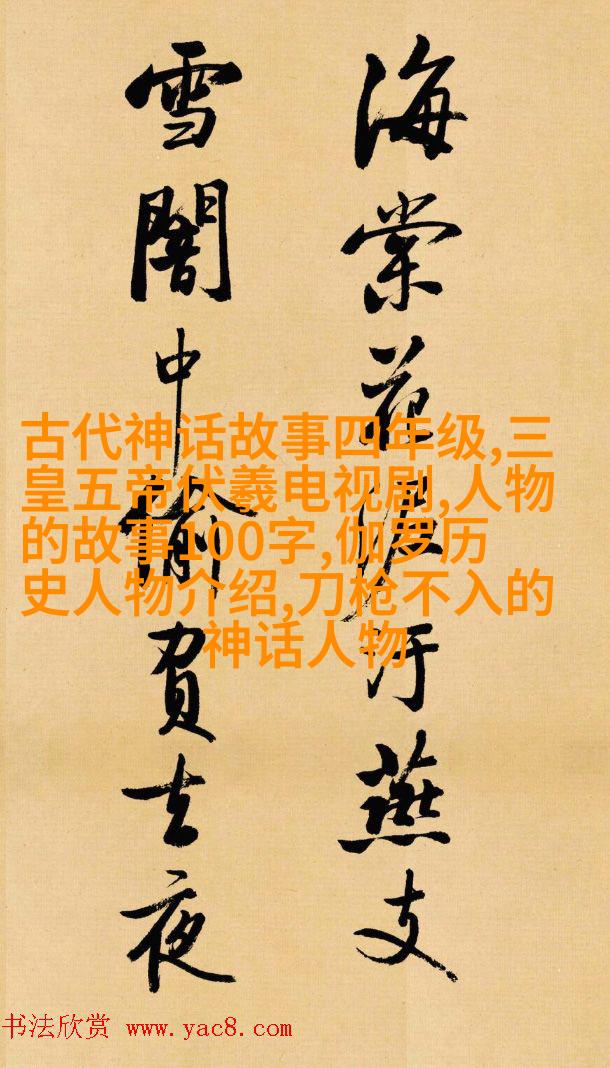 海棠花泥汙燕支
雪闇中偷負去夜
古代神话故事四年级,三
皇五帝伏羲电视剧,人物
的故事100字,伽罗历
史人物介绍,刀枪不入的
神话人物
书法欣赏 www.yac8.com